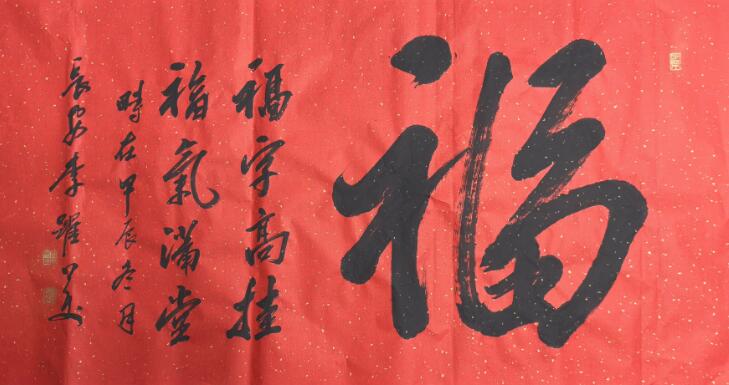 福
福字高挂
福氣滿堂
時在甲辰冬月
長安李躍